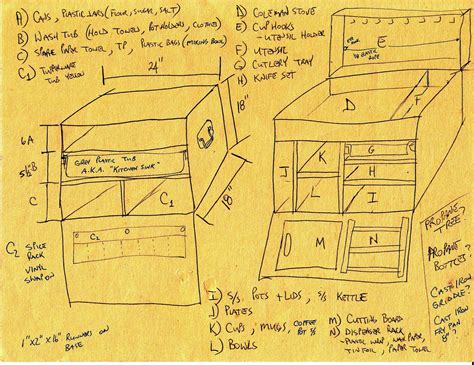 A) CANS, PLASTIC JARS (FLOUR, SUGAR, SALT)
B) WASH TUB (HOLD TOWELS, POT HOLDERS, CLOTHES)
C) SPARE PAPER TOWEL, TP, PLASTIC BAGS
C1) TUPPERWARE
TUB
YELLOW
24"
18"
6 A
5½" B
C
GREY PLASTIC TUB
A.K.A. "KITCHEN SINK"
C1
18"
C2 SPICE
RACK
VINYL
SNAP ON
C2
1"X2"X16" RUNNERS ON
BASE
D) COLEMAN STOVE
E) CUP HOOKS
- UTENSIL HOLDER
F) UTENSIL
G) CUTLERY TRAY
H) KNIFE SET
E
D
F
J
K
G
H
L
I
M
N
I) S/S POTS + LIDS, S/S KETTLE
J) PLATES
K) CUPS, MUGS, COFFEE
POT S/S
L) BOWLS
M) CUTTING BOARD
N) DISPENSER RACK
- PLASTIC WRAP, WAX PAPER,
TINFOIL, PAPER TOWEL
PROPANE
TREE?
PROPANE
BOTTLE?
CAST IRON
GRIDDLE?
CAST IRON
FRY PAN
8"?